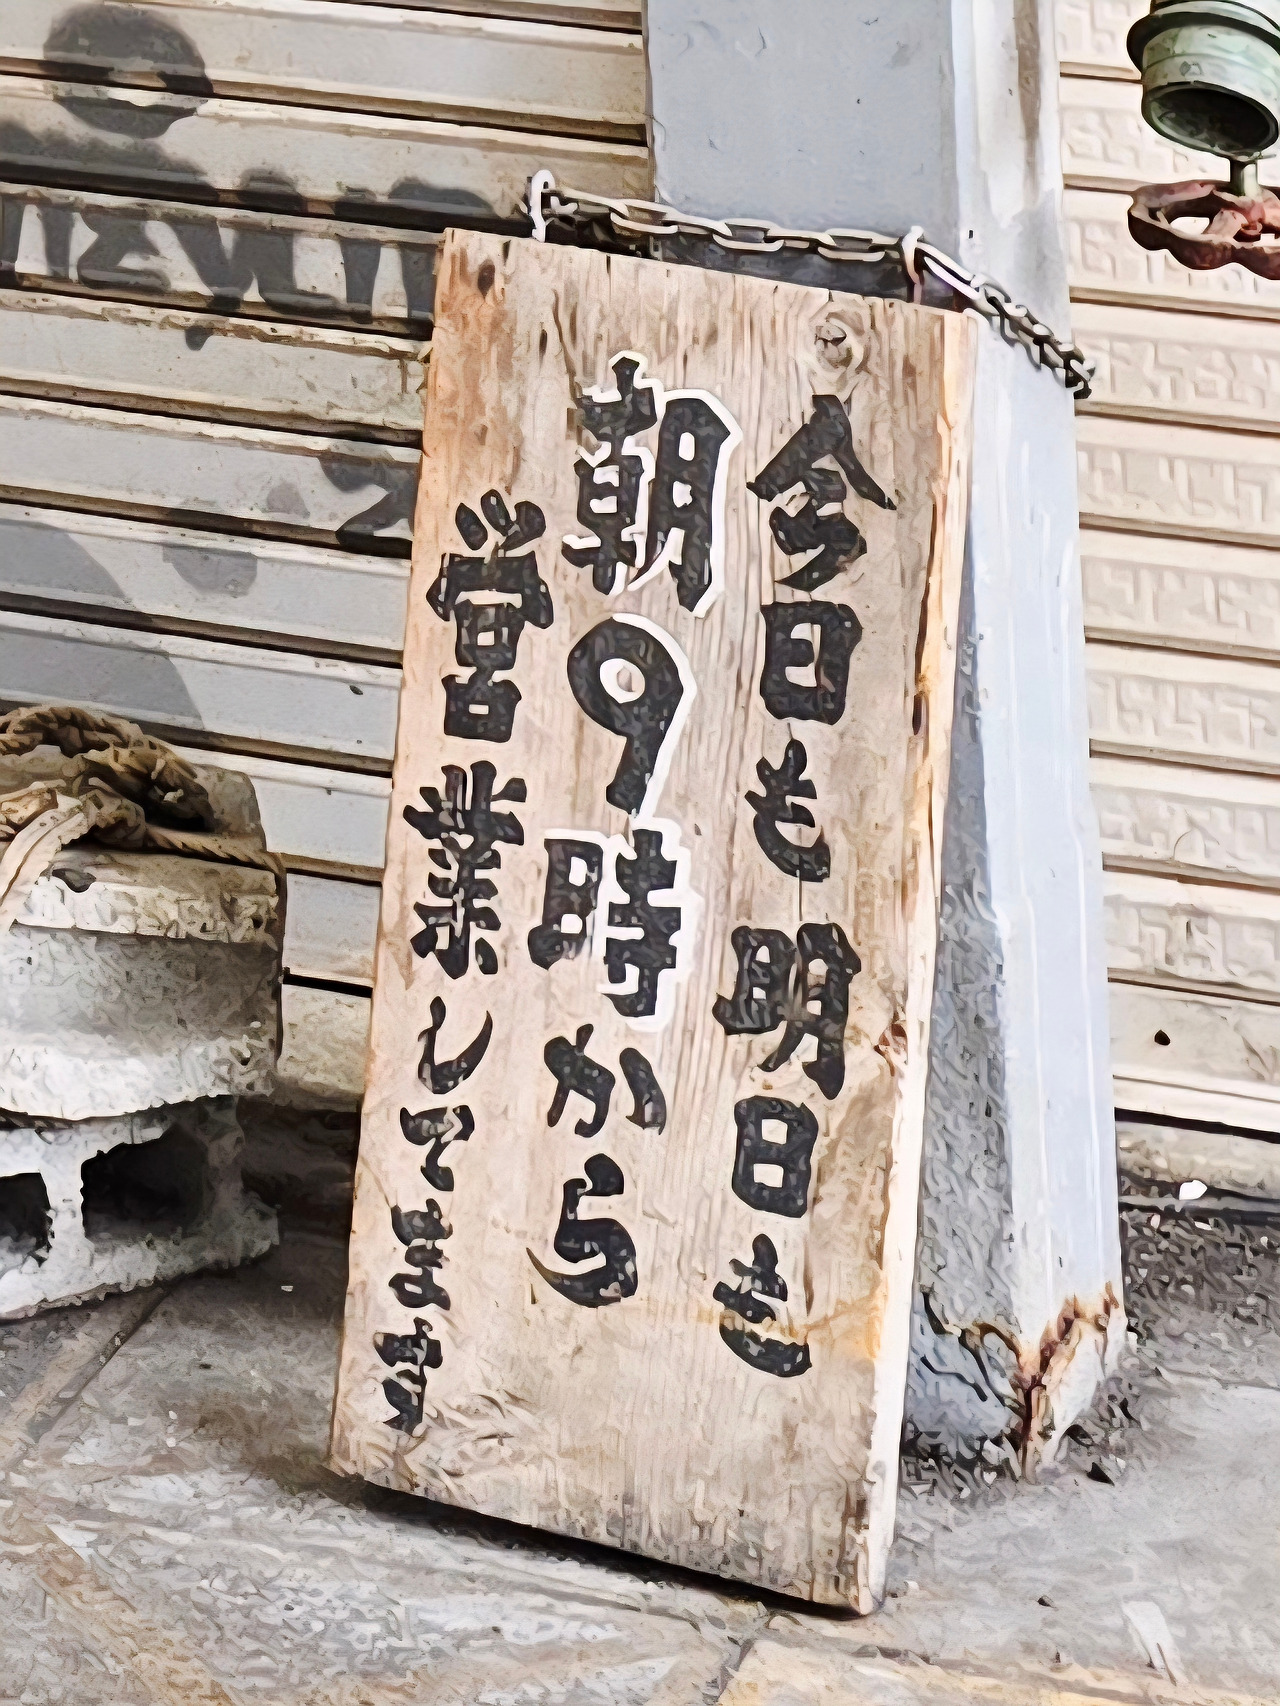 今日も明日も
朝9時から
営業してます